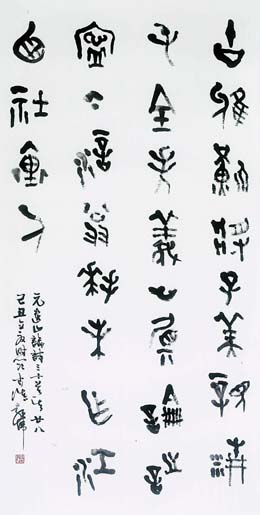 古雅難將子美親精
純全失義山真論詩
寧下涪翁拜未作江
西社裏人
元遺山論詩三十首之廿八
己丑